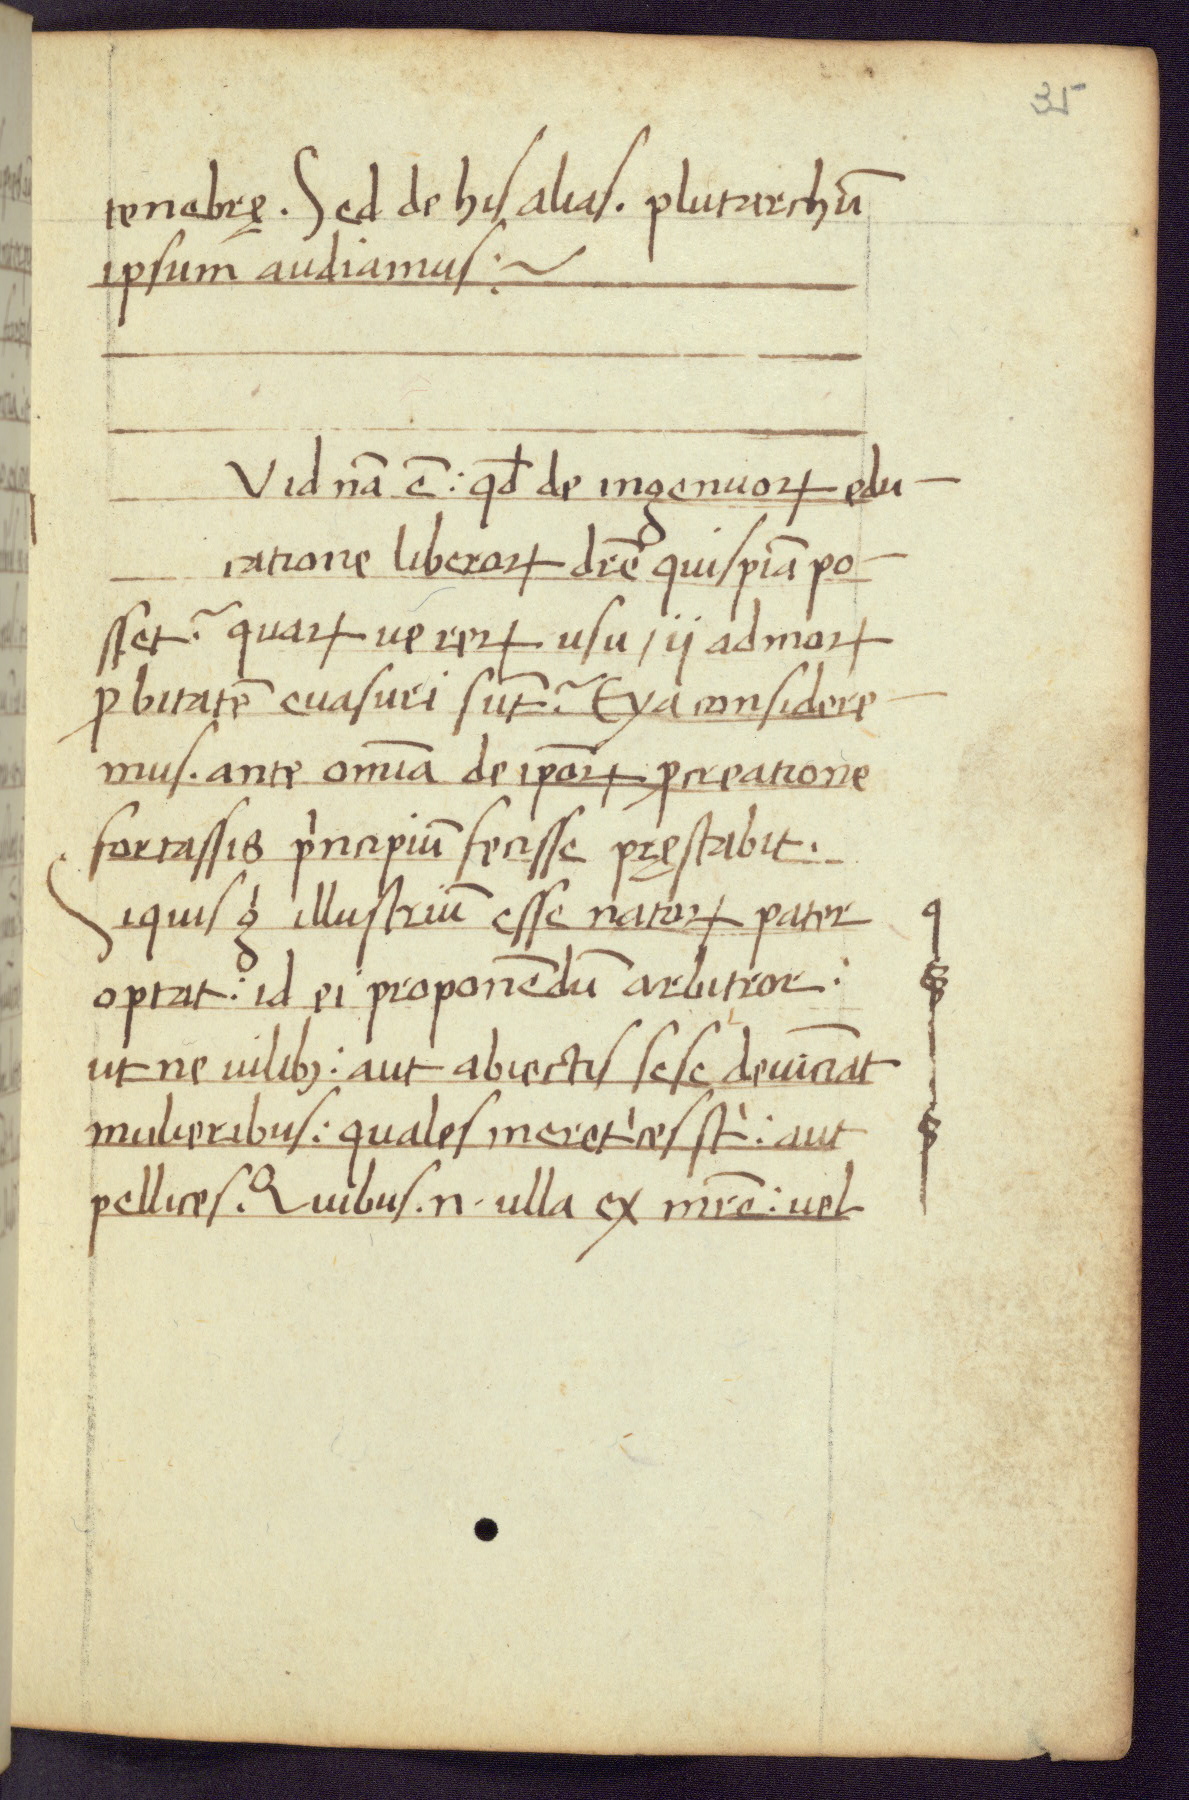 35
tenebrę. Sed de his alias. plutarchū
ipsum̄ audiamus:~
Vid nā ē: qđ de ingenuoꝝ edu-
catione liberoꝝ drē quispiā po-
sset? quaꝝ ue reꝝ usu / ij ad moꝝ
ꝓbitatē euasuri sūt? Eya considere-
mus. ante omīa de ip̄oꝝ ꝓcreatione
fortassis pͥncipiū fecisse pręstabit.
Siquis gͥ illustriū esse natoꝝ pater
optat: id ei proponēdū arbitror:
ut ne uilibꝫ: aut abiectis sese deuīciāt
mulieribus: quales meretͥces st̄: aut
pellices. Quibus. n. ulla ex mr̄e: uel